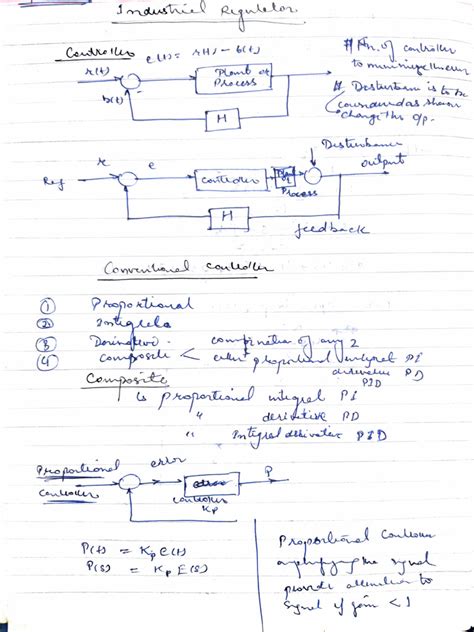 Industrial Regulator
Controller
e(t) = r(t) - b(t)
r(t)
b(t)
Plant or
Process
H
# Fn. of controller
to minimize the error
# Disturbance is to be
considered as shown
change the o/p.
Disturbance
output
Ref
r
e
controller
Plant
Process
H
feedback
Conventional controller
① Proportional
②
③ Derivative
④ Composite < combination of any 2
proportional integral PI
derivative PD
PID
Composite
↳ Proportional integral PI
" derivative PD
" Integral derivative PID
Proportional
controller
error
P
controller
Kp
P(t) = Kp e(t)
P(s) = Kp E(s)
Proportional Controller
amplifying the signal
provide attenuation to
signal if gain < 1